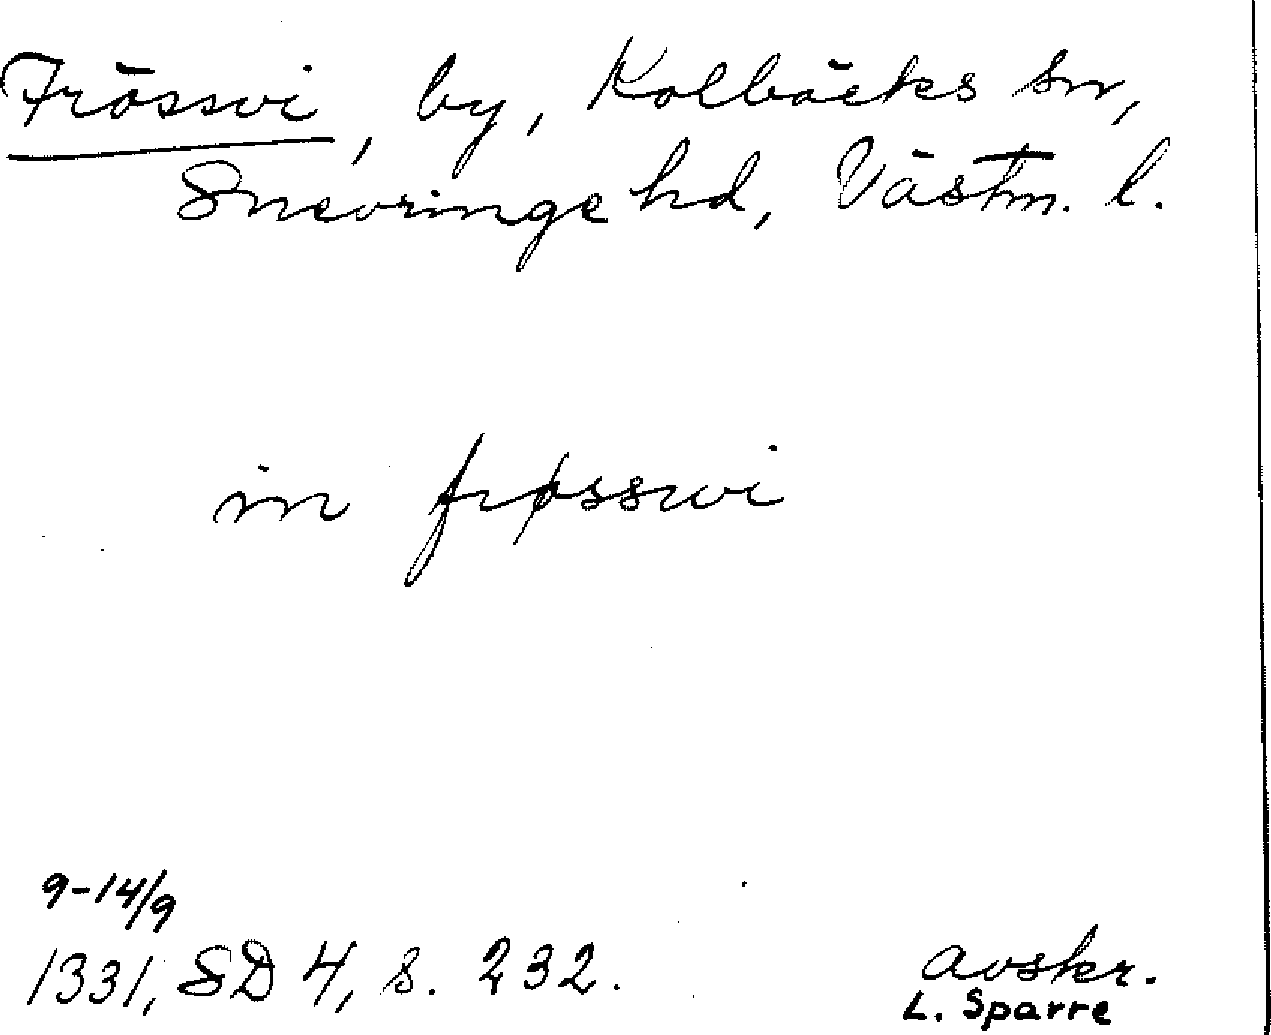 Frössvi, by, Kolbäcks sn,
Snevringe hd, Västm. l.
in frøsswi
9-14/9
1331, SD 4, s. 232.
avskr.
L. Sparre